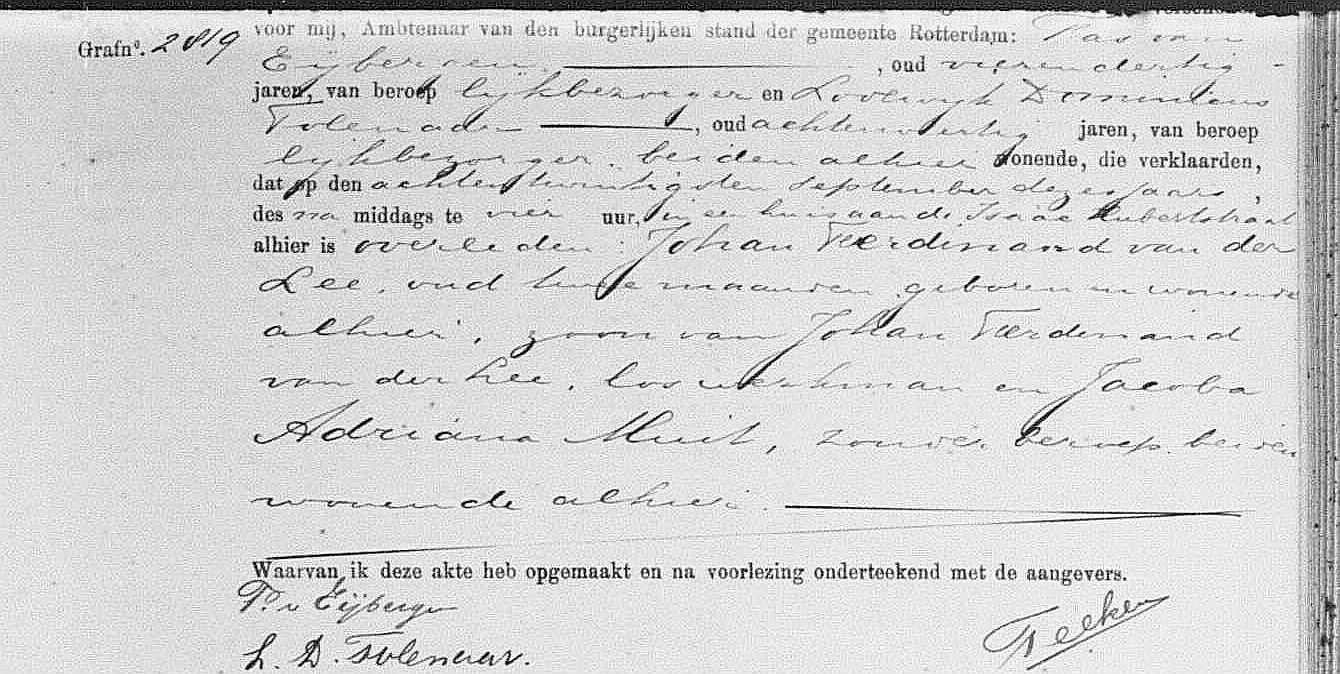 voor mij, Ambtenaar van den burgerlijken stand der gemeente Rotterdam: Pas van
Grafn°. 2819
Eijbergen, oud vierendertig
jaren, van beroep lijkbezorger en Lodewijk Dominicus
Tolenaar, oud achtenveertig jaren, van beroep
lijkbezorger, beiden alhier wonende, die verklaarden,
dat op den achtentwintigsten September dezes jaars,
des na middags te vier uur, in een huis aan de Isaac Hubertstraat
alhier is overleden: Johan Ferdinand van der
Lee, oud twee maanden, geboren en wonende
alhier, zoon van Johan Ferdinand
van der Lee, los werkman en Jacoba
Adriana Muit, zonder beroep, beiden
wonende alhier.
Waarvan ik deze akte heb opgemaakt en na voorlezing onderteekend met de aangevers.
P. v Eijbergen
L. D. Tolenaar.